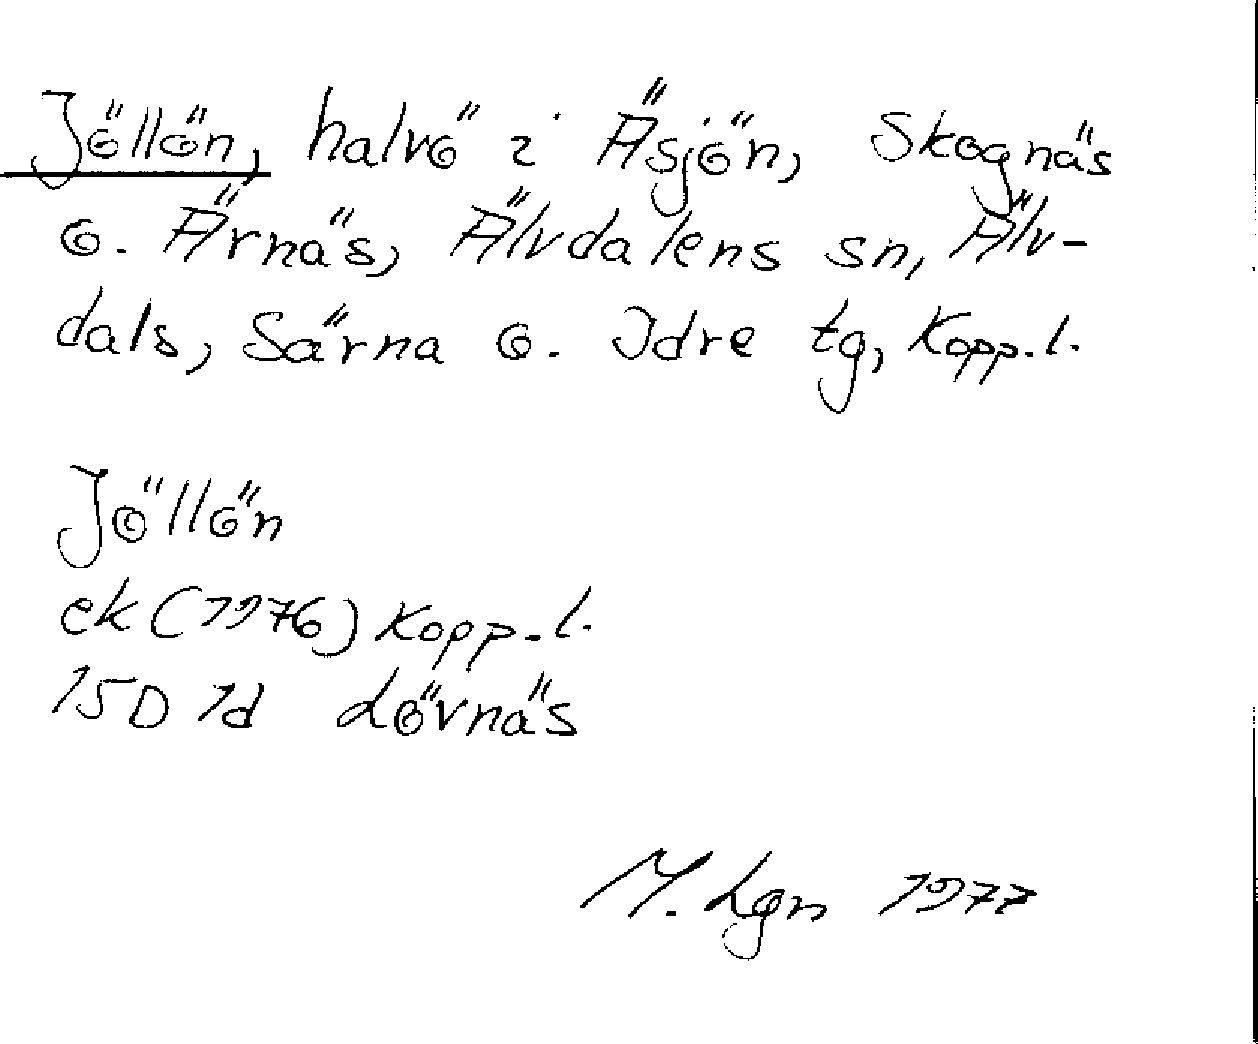 Jöllön, halvö i Äsjön, Skognäs
o. Ärnäs, Älvdalens sn, Älv-
dals, Särna o. Idre tg, Kopp.l.
Jöllön
ek (1976) Kopp.l.
15D 1d Lövnäs
M. Lgn 1977